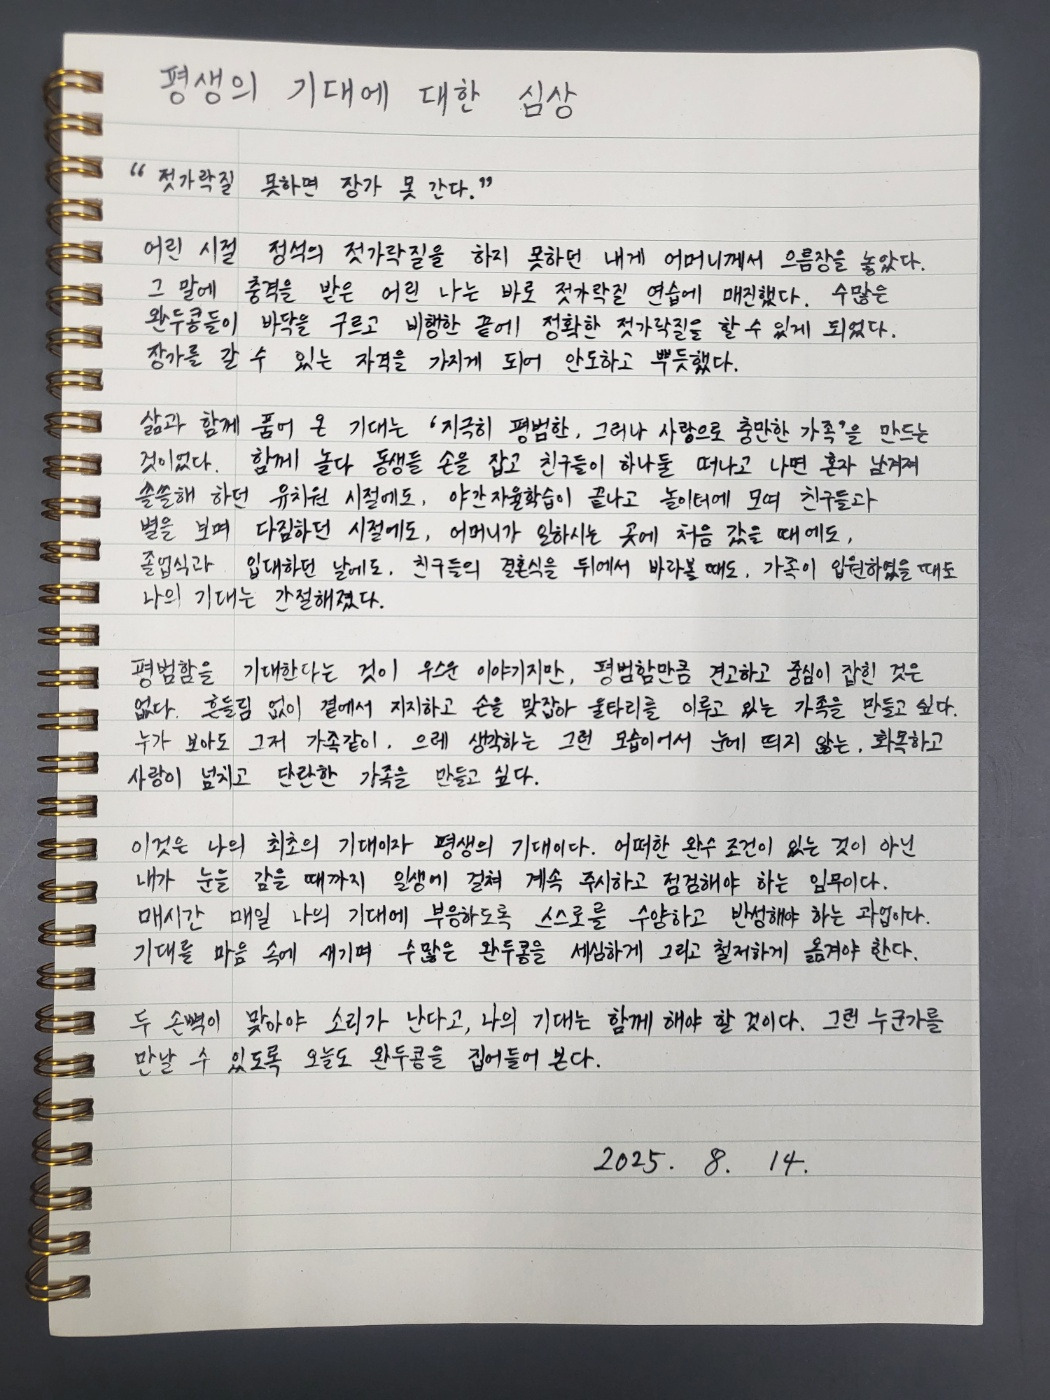 평생의 기대에 대한 심상
“젓가락질 못하면 장가 못 간다.”
어린 시절 정석의 젓가락질을 하지 못하던 내게 어머니께서 으름장을 놓았다.
그 말에 충격을 받은 어린 나는 바로 젓가락질 연습에 매진했다. 수많은
완두콩들이 바닥을 구르고 비행한 끝에 정확한 젓가락질을 할 수 있게 되었다.
장가를 갈 수 있는 자격을 가지게 되어 안도하고 뿌듯했다.
삶과 함께 품어 온 기대는 ‘지극히 평범한, 그러나 사랑으로 충만한 가족’을 만드는
것이었다. 함께 놀다 동생들 손을 잡고 친구들이 하나둘 떠나고 나면 혼자 남겨져
쓸쓸해 하던 유치원 시절에도, 야간자율학습이 끝나고 놀이터에 모여 친구들과
별을 보며 다짐하던 시절에도, 어머니가 일하시는 곳에 처음 갔을 때에도,
졸업식과 입대하던 날에도, 친구들의 결혼식을 뒤에서 바라볼 때도, 가족이 입원하였을 때도
나의 기대는 간절해졌다.
평범함을 기대한다는 것이 우스운 이야기지만, 평범함만큼 견고하고 중심이 잡힌 것은
없다. 흔들림 없이 곁에서 지지하고 손을 맞잡아 울타리를 이루고 있는 가족을 만들고 싶다.
누가 보아도 그저 가족같이, 으레 생각하는 그런 모습이어서 눈에 띄지 않는, 화목하고
사랑이 넘치고 단란한 가족을 만들고 싶다.
이것은 나의 최초의 기대이자 평생의 기대이다. 어떠한 완수 조건이 있는 것이 아닌
내가 눈을 감을 때까지 일생에 걸쳐 계속 주시하고 점검해야 하는 임무이다.
매시간 매일 나의 기대에 부응하도록 스스로를 수양하고 반성해야 하는 과업이다.
기대를 마음 속에 새기며 수많은 완두콩을 세심하게 그리고 철저하게 옮겨야 한다.
두 손뼉이 맞아야 소리가 난다고, 나의 기대는 함께 해야 할 것이다. 그런 누군가를
만날 수 있도록 오늘도 완두콩을 집어들어 본다.
2025. 8. 14.